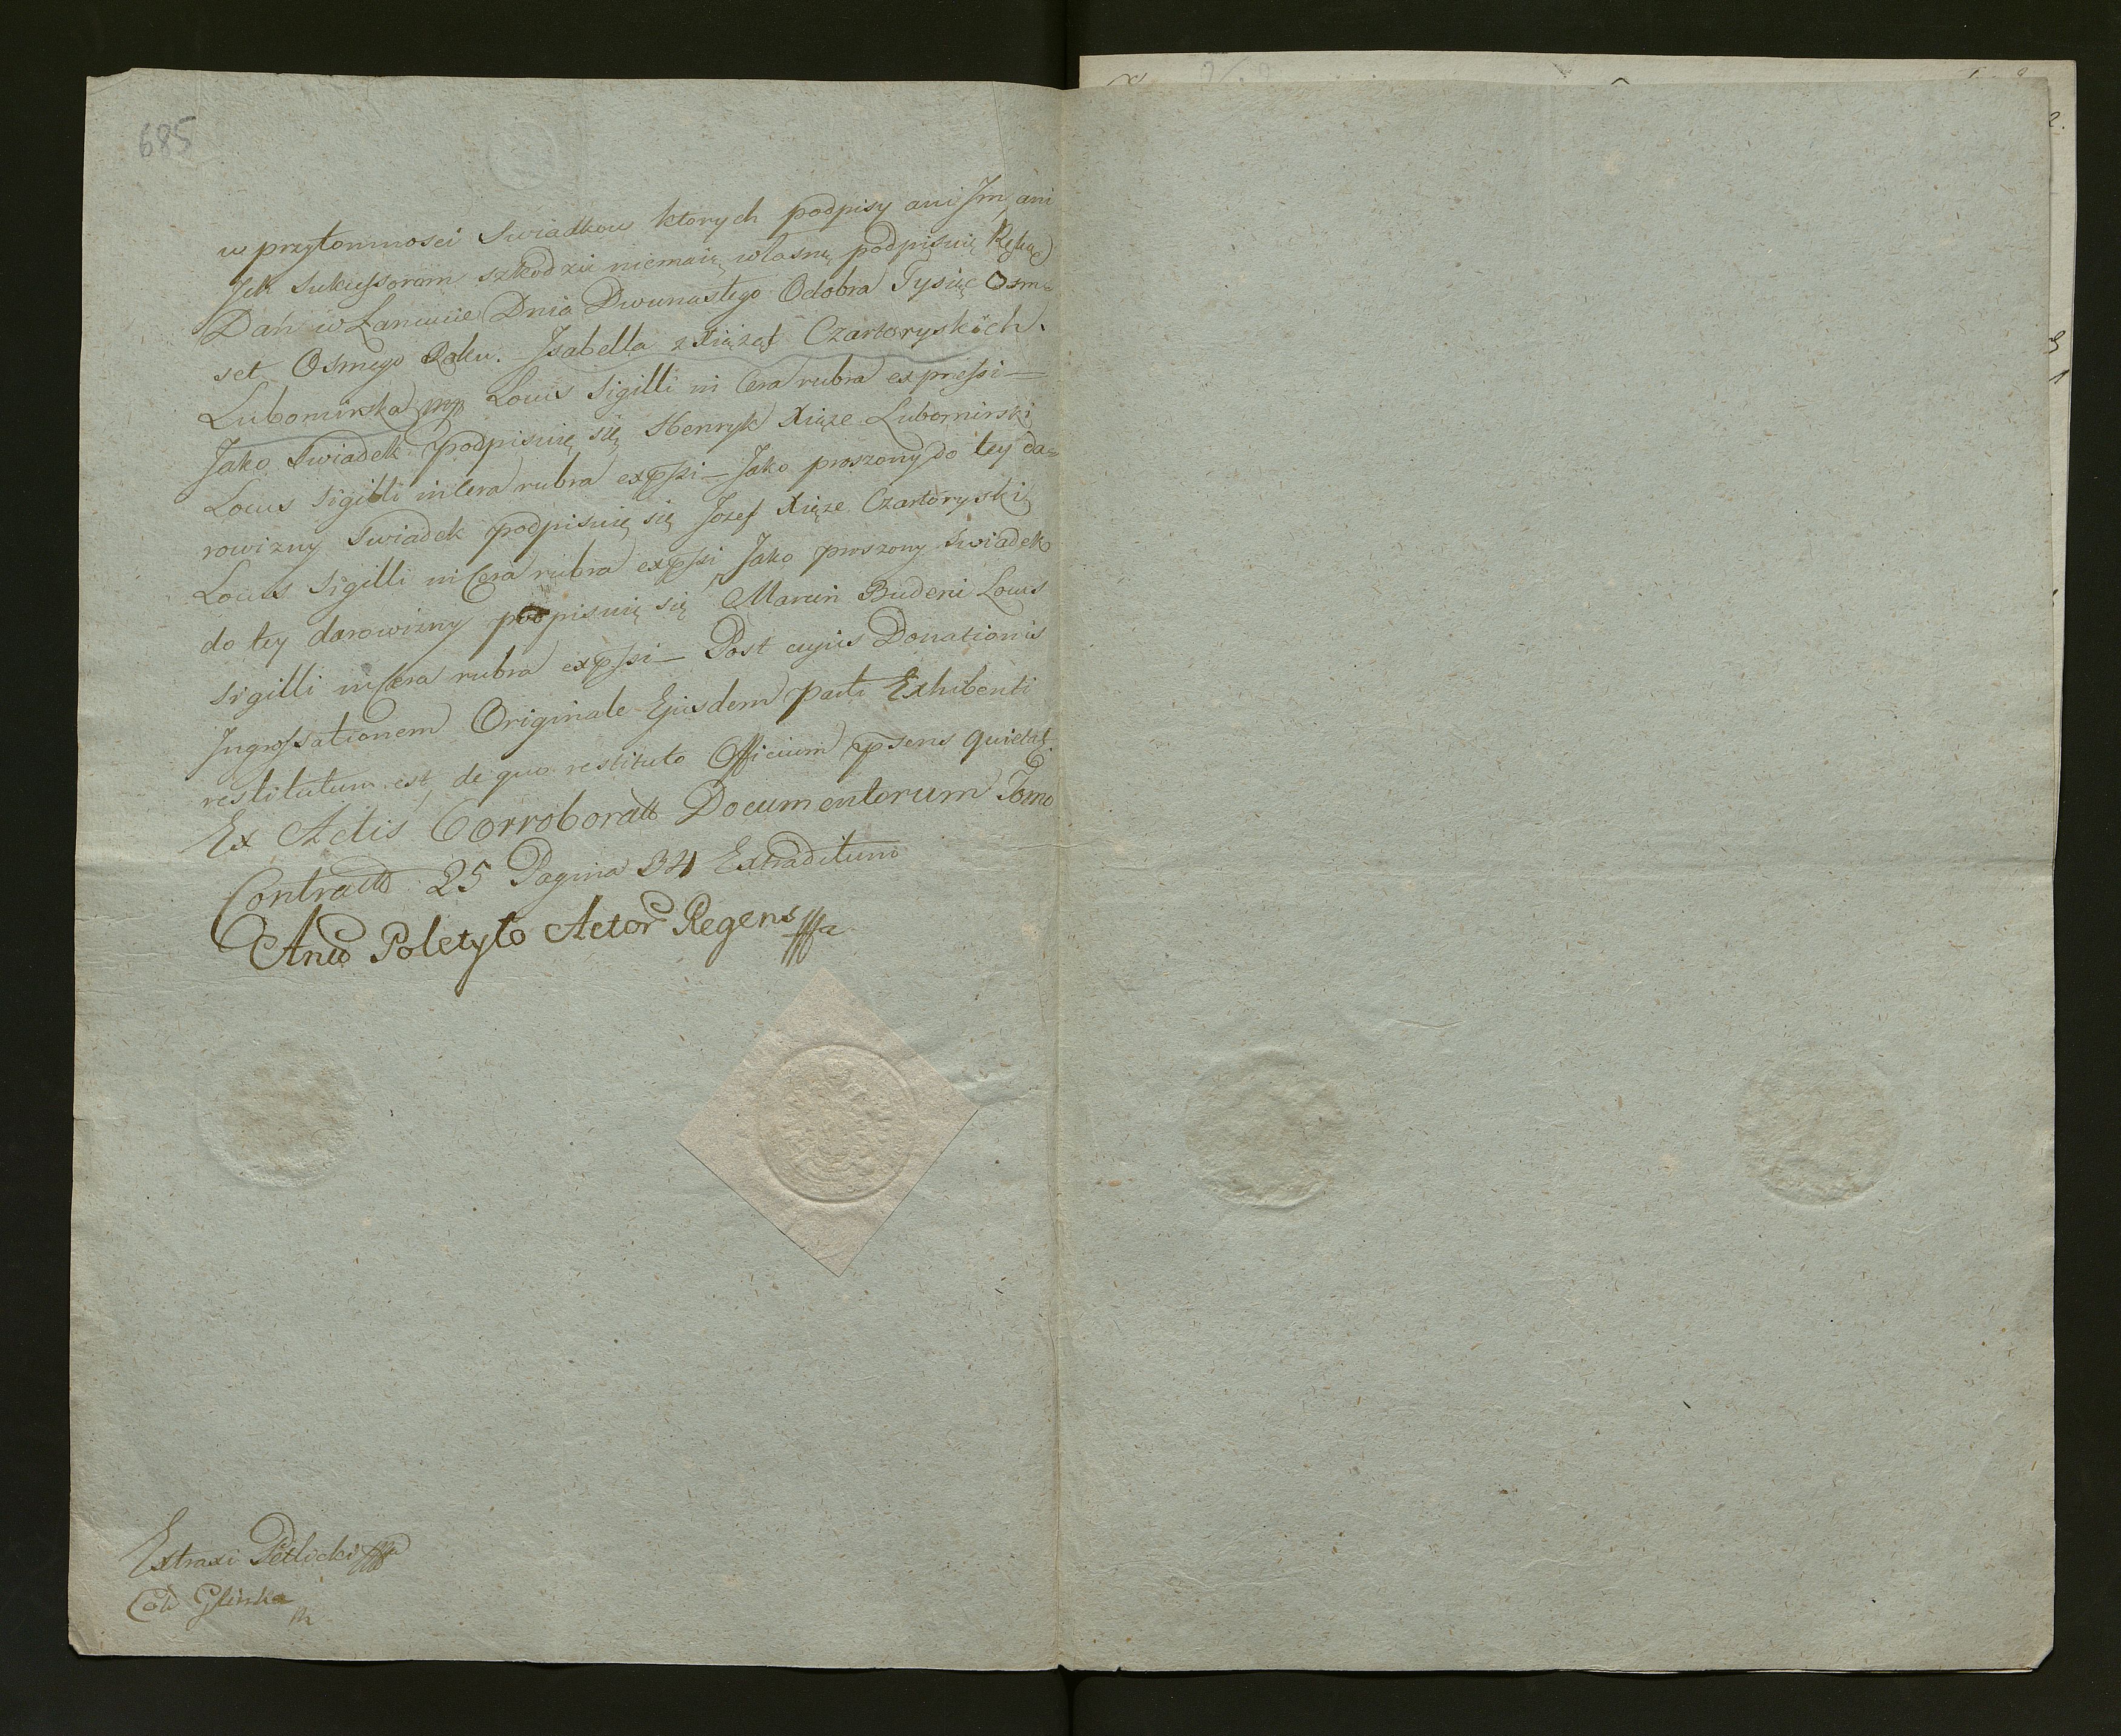 685
w przytomnosci Swiadkow ktorych podpisy ani Im, ani
Ich Sukcessorom szkodzić niemaią, własną podpisuię Ręką
Dań w Łancucie Dnia Dwunastego Octobra Tysiąc Osm=
set Osmego Roku. Izabella z Xiążąt Czartoryskich
Lubomirska mp Locus Sigilli in Cera rubra expressi —
Jako Swiadek podpisuię się Henryk Xiąże Lubomirski
Locus Sigilli in Cera rubra expssi — Jako proszony do tey da=
rowizny Swiadek podpisuię się Jozef Xiąze Czartoryski
Locus Sigilli in Cera rubra expssi Jako proszony Swiadek
do tey darowizny podpisuię się Marcin Badeni Locus
Sigilli in Cera rubra expssi — Post cujus Donationis
Ingrossationem Originale Ejusdem parti Exhibenti
restitutum est, de quo restituto Officium psens quietat
Ex Actis Corroboratt Documentorum Tomo
Contractt 25 Pagina 34 Extraditum
Poletyło Actor Regens
Extraxi Petlicki
Coll Glinka